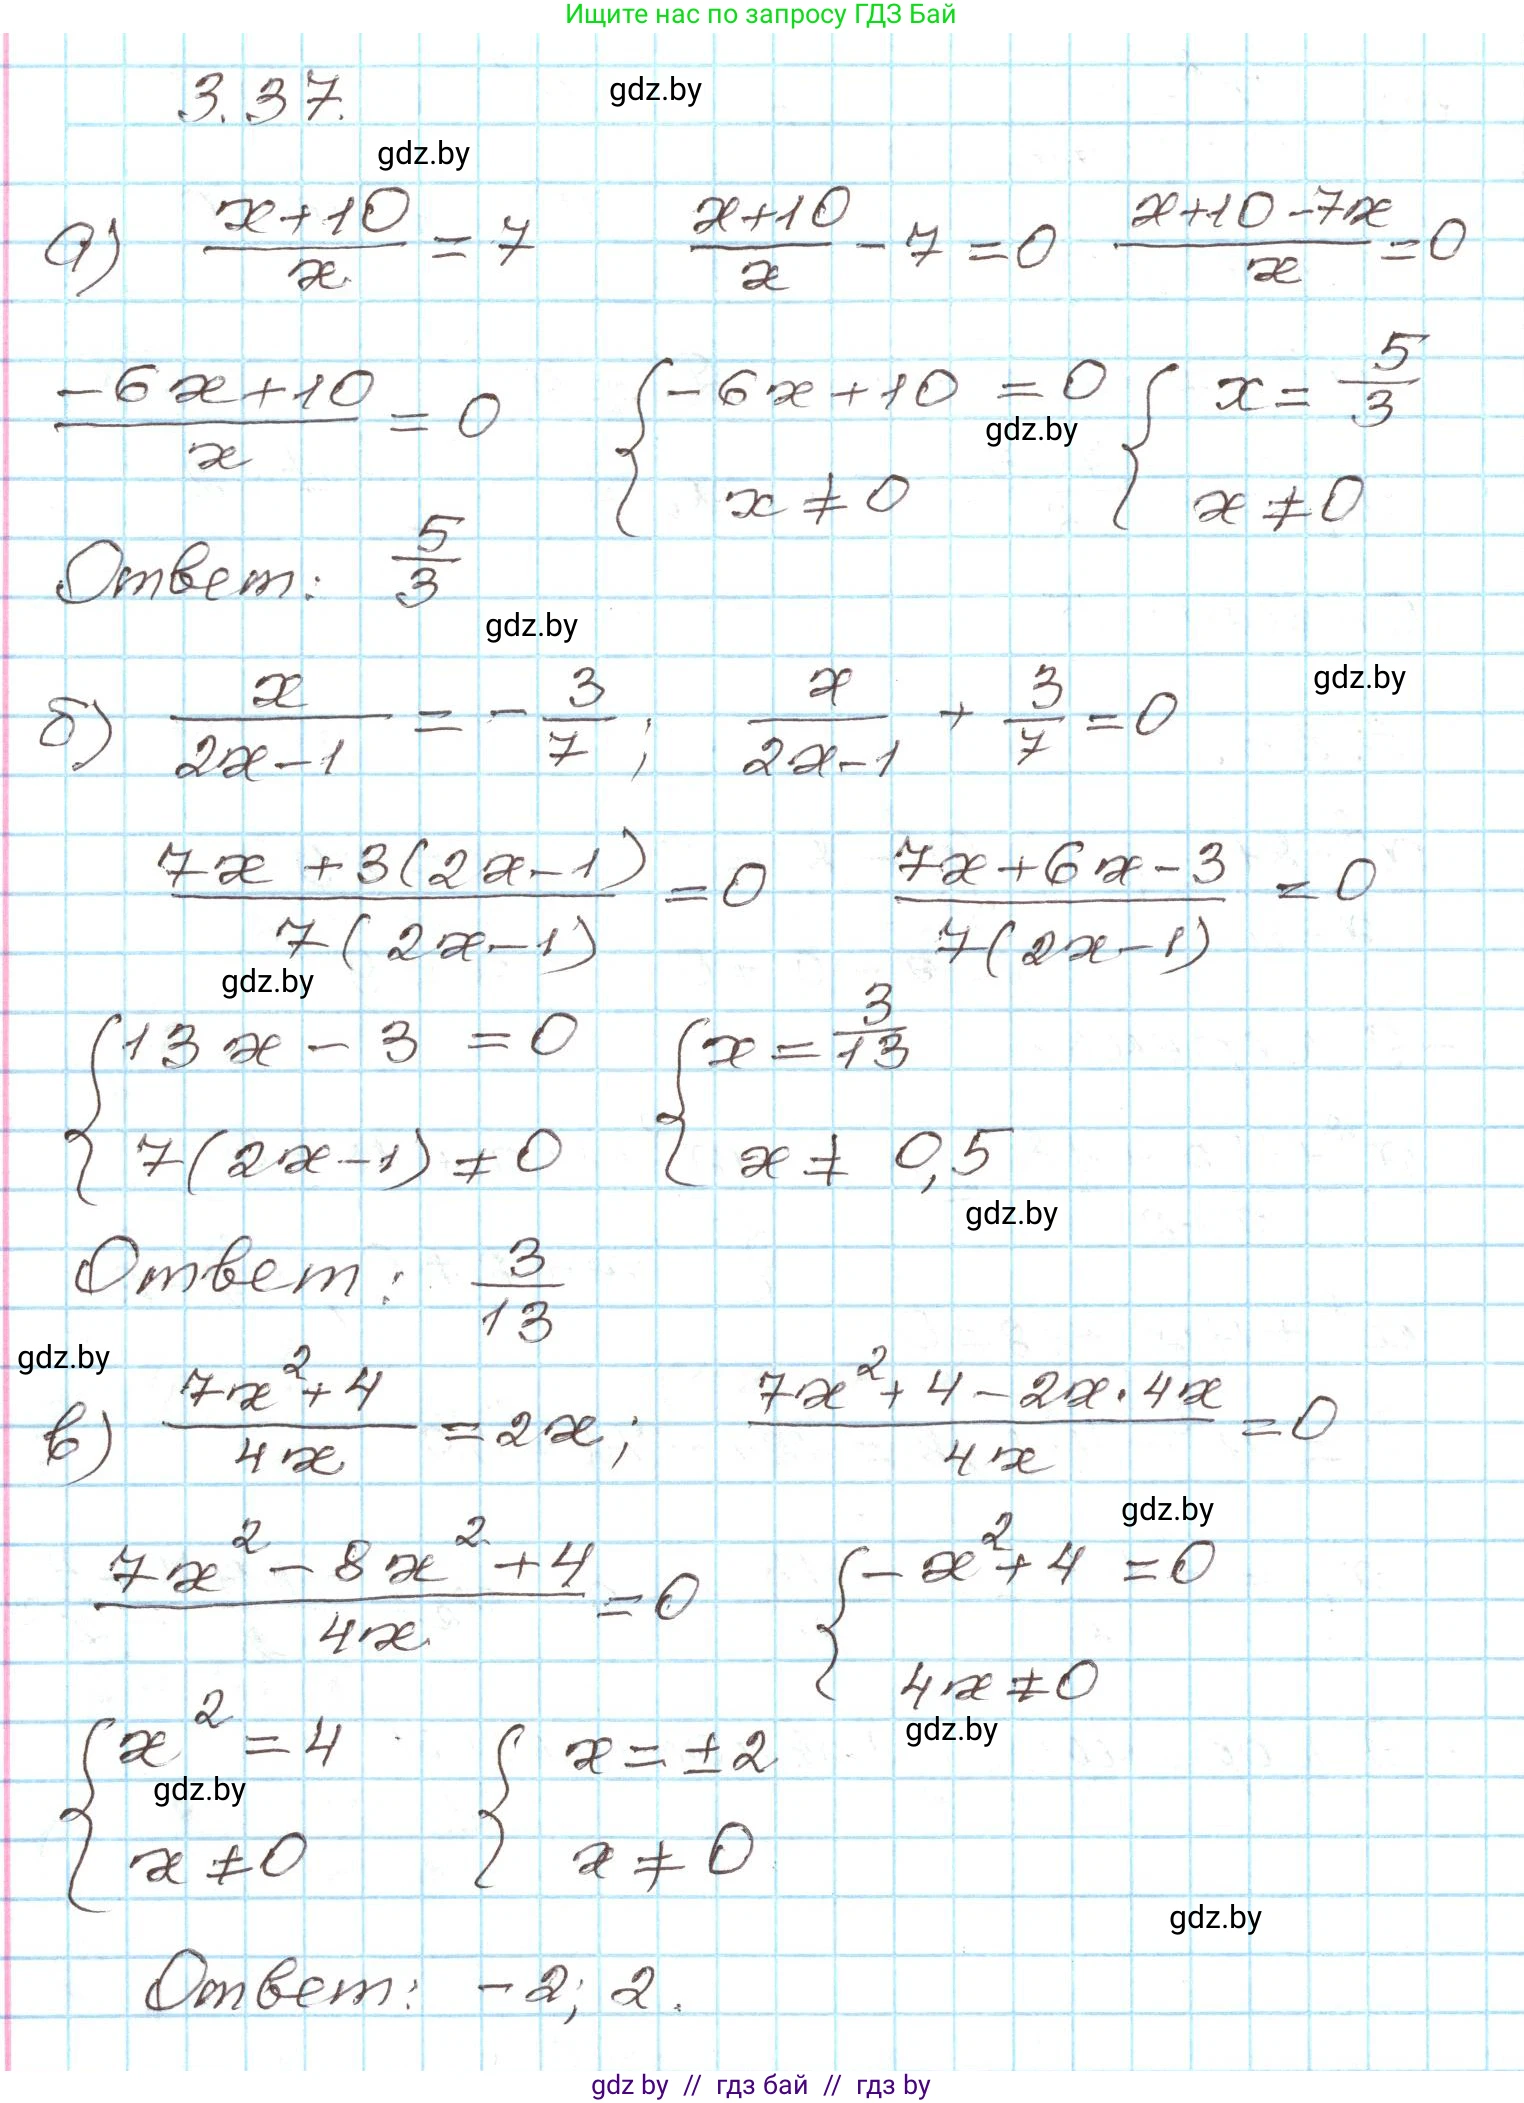 Ищите нас по запросу ГДЗ Бай
3.37. gdz.by
gdz.by
а) (x+10)/x = 7 (x+10)/x - 7 = 0 (x+10-7x)/x = 0
(-6x+10)/x = 0 { -6x+10 = 0 { x = 5/3
gdz.by
x ≠ 0 x ≠ 0
Ответ: 5/3
gdz.by
б) x/(2x-1) = -3/7; x/(2x-1) + 3/7 = 0 gdz.by
(7x+3(2x-1))/(7(2x-1)) = 0 (7x+6x-3)/(7(2x-1)) = 0
gdz.by
{ 13x-3 = 0 { x = 3/13
7(2x-1) ≠ 0 x ≠ 0,5
gdz.by
Ответ: 3/13
gdz.by
в) (7x²+4)/(4x) = 2x; (7x²+4-2x·4x)/(4x) = 0
gdz.by
(7x²-8x²+4)/(4x) = 0 { -x²+4 = 0
4x ≠ 0
gdz.by
{ x² = 4 { x = ±2
gdz.by
x ≠ 0 x ≠ 0
gdz.by
Ответ: -2; 2.
gdz by // гдз бай // гдз by